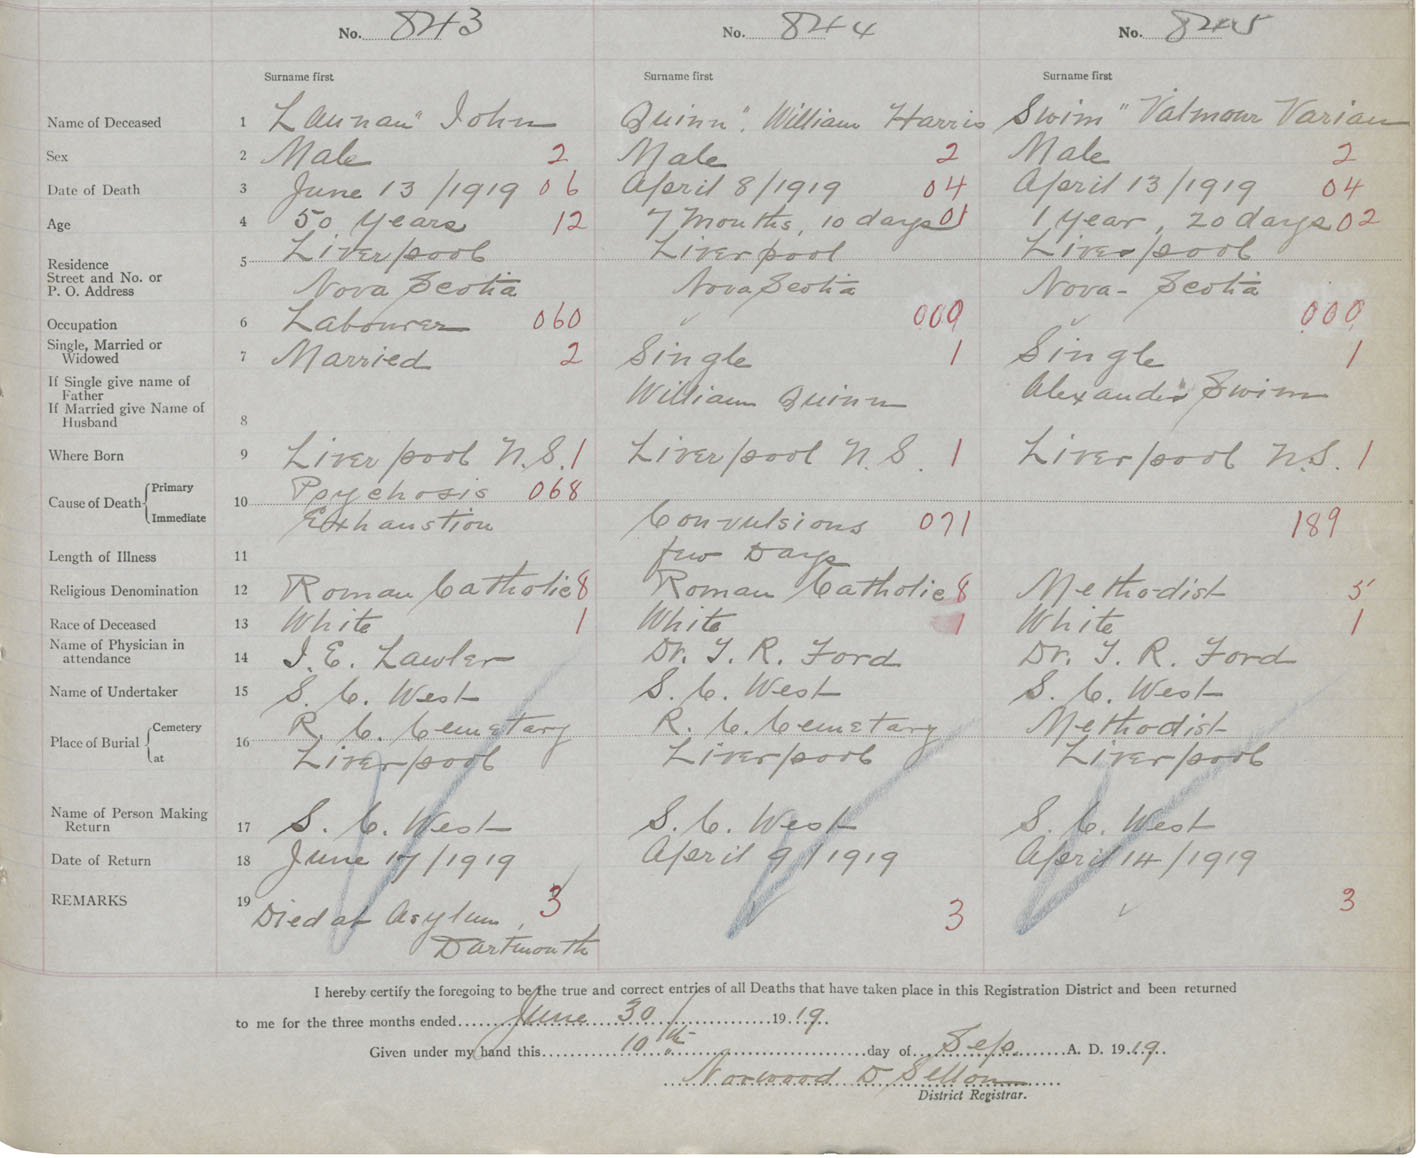 No. 843 No. 844 No. 845
Surname first Surname first Surname first
Name of Deceased 1 Launan" John Quinn", William Harris Swim" Valmour Varian
Sex 2 Male 2 Male 2 Male 2
Date of Death 3 June 13/1919 06 April 8/1919 04 April 13/1919 04
Age 4 50 years 12 7 Months, 10 days 01 1 year, 20 days 02
Residence
Street and No. or
P. O. Address
5 Liverpool Liverpool Liverpool
Nova Scotia Nova Scotia Nova - Scotia
Occupation 6 Labourer 060 009 000
Single, Married or
Widowed
7 Married 2 Single 1 Single 1
If Single give name of
Father
If Married give Name of
Husband
8 William Quinn Alexander Swim
Where Born 9 Liverpool N.S. 1 Liverpool N.S. 1 Liverpool N.S. 1
Cause of Death Primary 10 Psychosis 068
Immediate Exhaustion Convulsions 071 189
Length of Illness 11 few Days
Religious Denomination 12 Roman Catholic 8 Roman Catholic 8 Methodist 5
Race of Deceased 13 White 1 White 1 White 1
Name of Physician in
attendance
14 I. E. Lawler Dr. T. R. Ford Dr. T. R. Ford
Name of Undertaker 15 S. C. West S. C. West S. C. West
Place of Burial Cemetery 16 R. C. Cemetary R. C. Cemetary Methodist
at Liverpool Liverpool Liverpool
Name of Person Making
Return
17 S. C. West S. C. West S. C. West
Date of Return 18 June 17/1919 April 9/1919 April 14/1919
REMARKS 19 Died at Asylum, 3 3 3
Dartmouth
I hereby certify the foregoing to be the true and correct entries of all Deaths that have taken place in this Registration District and been returned
to me for the three months ended June 30/ 1919.
Given under my hand this 10th day of Sep. A. D. 1919.
Norwood D
District Registrar.